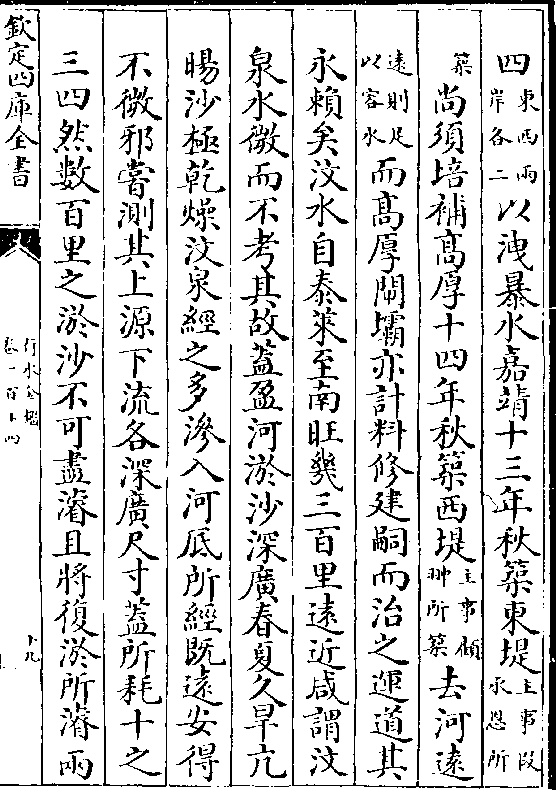 四東西兩岸各二以洩暴水嘉靖十三年秋築東堤主事段承恩所
築尚須培補髙厚十四年秋築西堤主事傾翀所築去河遠
遠則足以容水而髙厚閘壩亦計料修建嗣而治之運道其
永賴矣汶水自泰萊至南旺幾三百里遠近咸謂汶
泉水微而不考其故葢盈河淤沙深廣春夏久旱亢
暘沙極乾燥汶泉經之多滲入河底所經既遠安得
不微邪嘗測其上源下流各深廣尺寸葢所耗十之
三四然數百里之淤沙不可盡濬且將復淤所濬兩
欽定四庫全書
行水金鑑
卷一百十四
十九